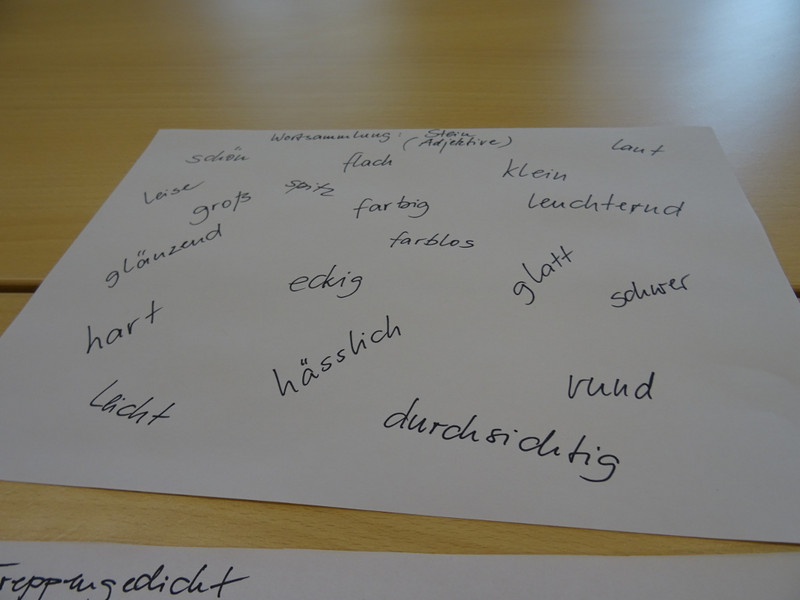 Wortsammlung: Stein
(Adjektive)
schön
flach
klein
laut
leise
spitz
groß
farbig
leuchternd
glänzend
farblos
eckig
glatt
schwer
hart
hässlich
rund
leicht
durchsichtig
Treppengedicht